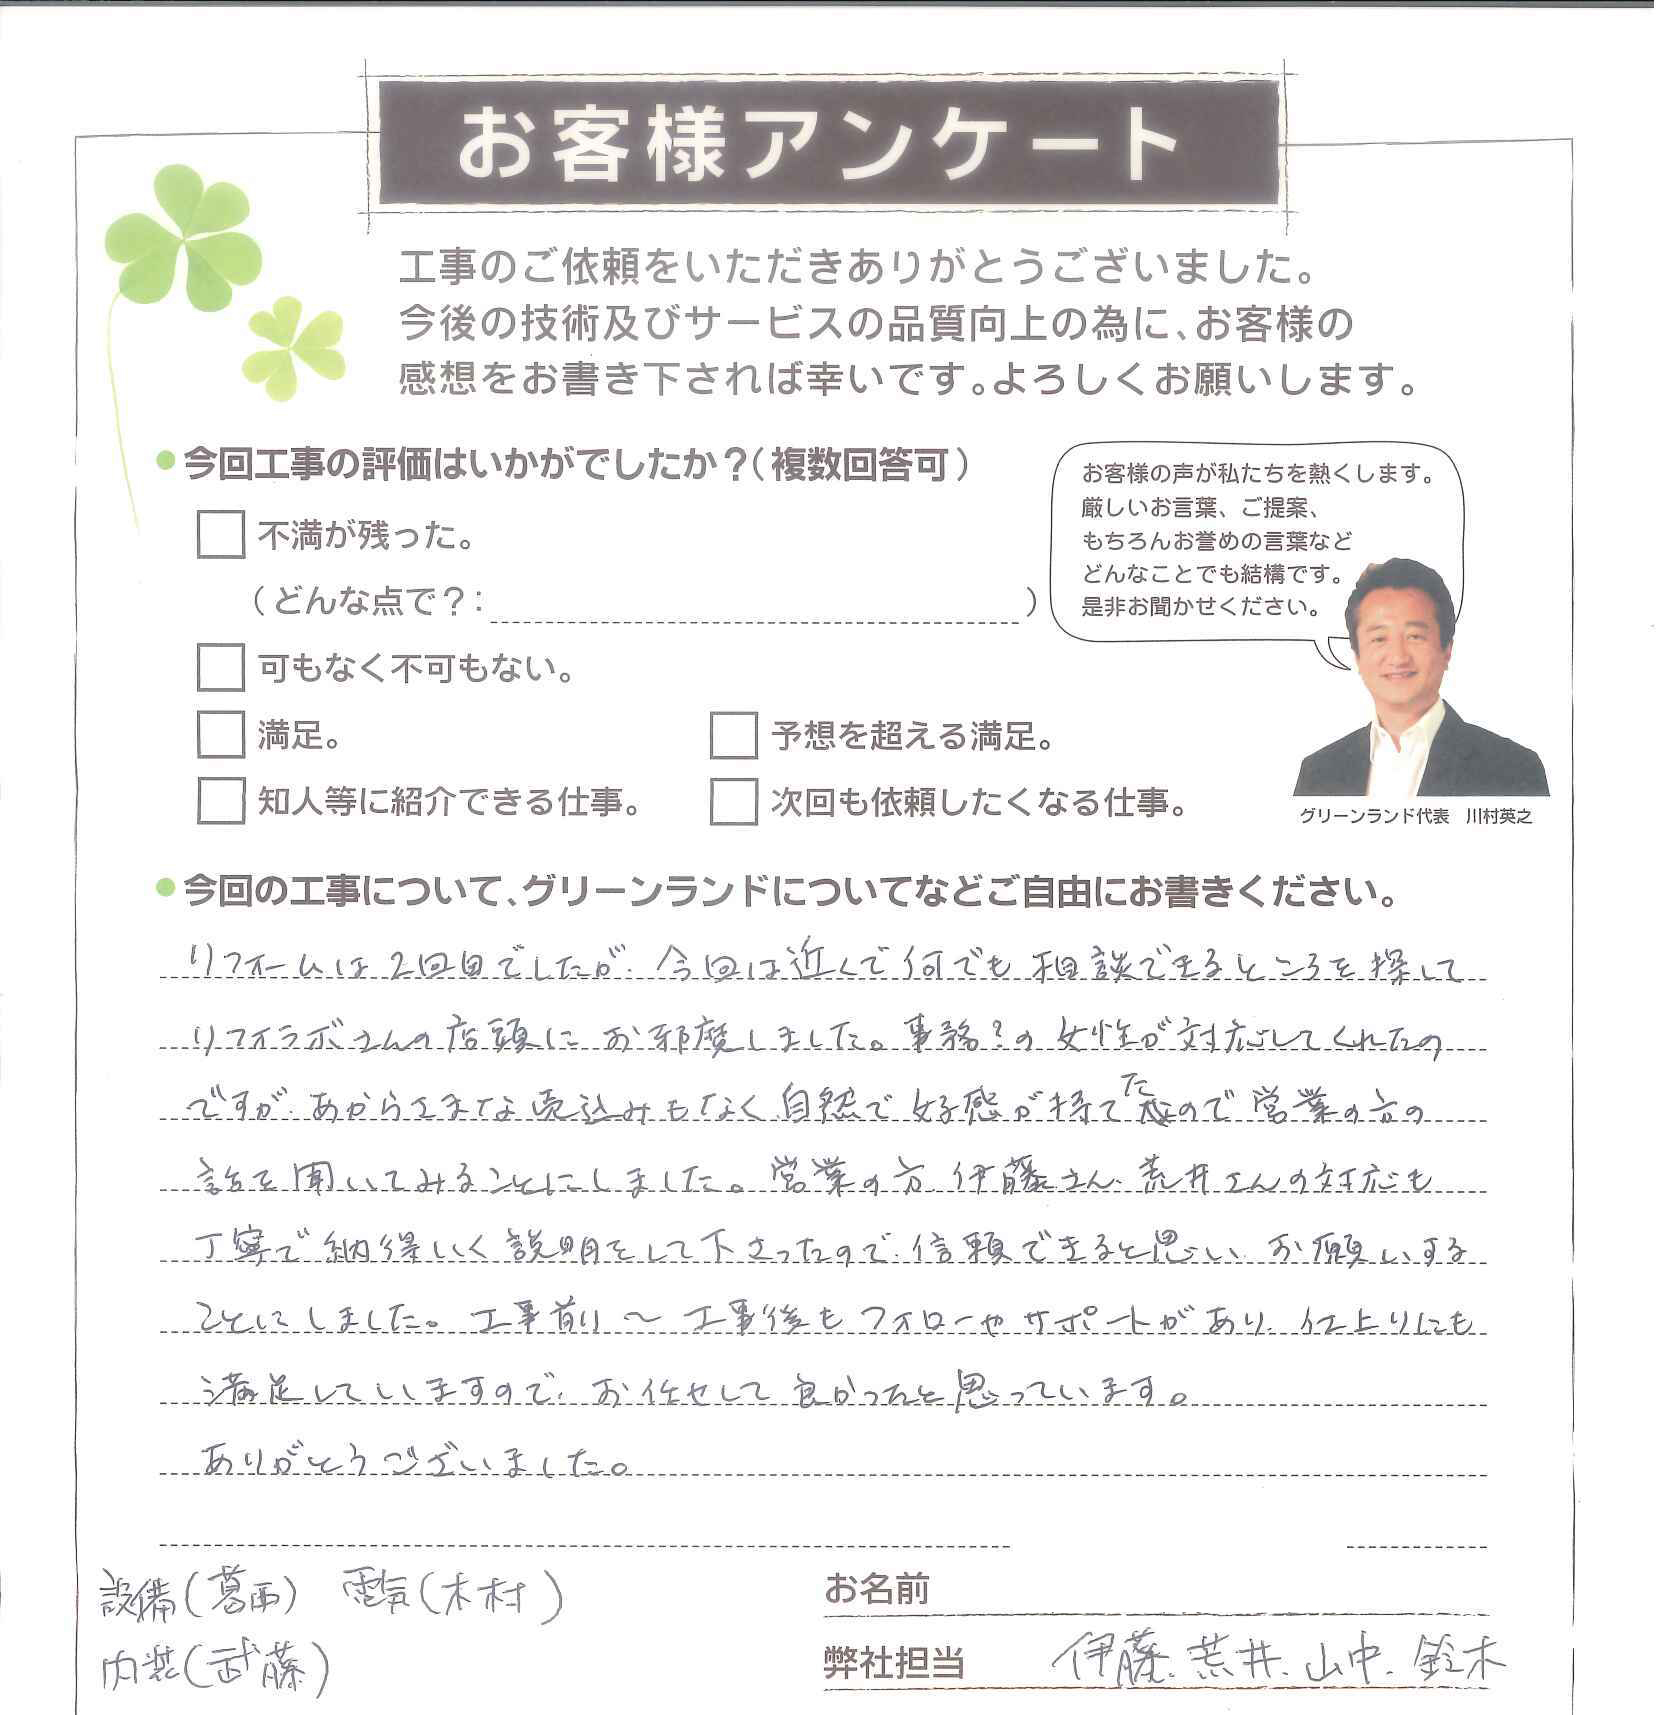 お客様アンケート
工事のご依頼をいただきありがとうございました。
今後の技術及びサービスの品質向上の為に、お客様の
感想をお書き下されば幸いです。よろしくお願いします。
今回工事の評価はいかがでしたか？（複数回答可）
不満が残った。
（どんな点で？：　）
可もなく不可もない。
満足。
予想を超える満足。
知人等に紹介できる仕事。
次回も依頼したくなる仕事。
お客様の声が私たちを熱くします。
厳しいお言葉、ご提案、
もちろんお誉めの言葉など
どんなことでも結構です。
是非お聞かせください。
グリーンランド代表　川村英之
今回の工事について、グリーンランドについてなどご自由にお書きください。
リフォームは2回目でしたが、今回は近くで何でも相談できるところを探して
リフォラボさんの店頭にお邪魔しました。事務？の女性が対応してくれたの
ですが、あからさまな売込みもなく自然で好感が持てたので営業の方の
話を聞いてみることにしました。営業の方、伊藤さん、荒井さんの対応も
丁寧で納得いく説明をして下さったので、信頼できると思い、お願いする
ことにしました。工事前〜工事後もフォローやサポートがあり、仕上りにも
満足していますので、お任せして良かったと思っています。
ありがとうございました。
設備(葛西)　電気(木村)
内装(武藤)
お名前
弊社担当　伊藤、荒井、山中、鈴木